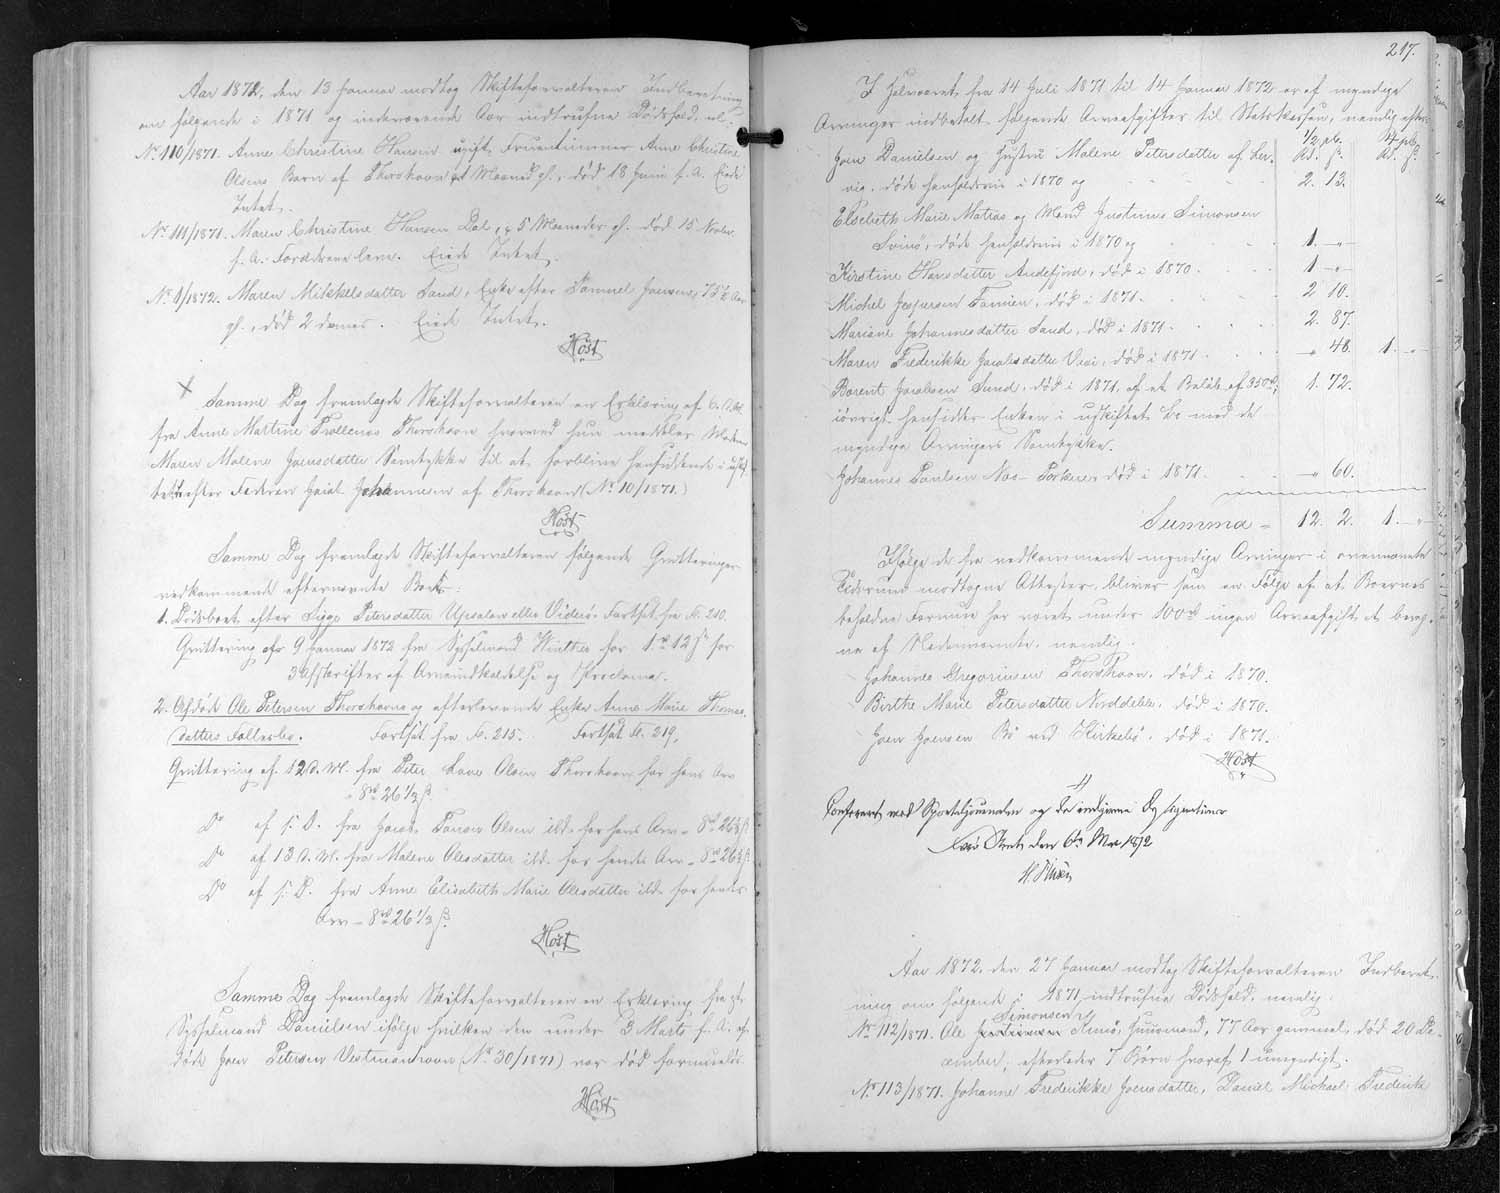 Aar 1872, den 13 Januar modtog Skifteforvalteren Indberetning
om følgende i 1871 og indeværende Aar indtrufne Dødsfald, nl.
No 110/1871. Anne Christine Hansen ugift Fruentimmer Anne Christine
Olsens Barn af Thorshavn, Maaned gl., død 18 Juni f. A. Eiede
Intet.
No 111/1871. Maren Christine Hansen Dal, 5 Maaneder gl. død 15 Novbr
f. A. Forældrene leve. Eiede Intet.
No 1/1872. Maren Mikkelsdatter Sand, Enke efter Samuel Joensen, 75½ Aar
gl., død 2 dennes. Eiede Intet.
Høst
Samme Dag fremlagde Skifteforvalteren en Erklæring af
fra Anne Martine Trollenæs Thorshavn hvorved hun meddeler Moderen
Maren Malene Joensdatter Samtykke til at forblive hensiddende i uskif-
tet efter Faderen Johannesen af Thorshavn (No 10/1871.)
Høst
Samme Dag fremlagde Skifteforvalteren følgende Qvitteringer
vedkommende efternævnte Boer:
1. Dødsboet efter Sigge Petersdatter Upsalen eller Viderø. Fortsat fra Fo. 210.
Qvittering af 9 Januar 1872 fra Sysselmand Winther for 1 rd 12 ß for
3 Afskrifter af Arveindkaldelse og Proclama.
2. Afdøde Ole Petersen Thorshavn og efterlevende Enke Anne Marie Thomas-
datters Fællesbo. Fortsat fra Fo. 215. Fortsat Fo. 219.
Qvittering af 12 d. M. fra Peter Lave Olsen Thorshavn for hans Arv
8 rd 26 1/3 ß.
Do af s. D. fra Jacob Olsen ibd. for hans Arv - 8 rd 26 1/3 ß
Do af 13 d. M. fra Malene Olesdatter ibd. for hendes Arv - 8 rd 26 1/3 ß
Do af s. D. fra Anne Elisabeth Marie Olesdatter ibd. for hendes
Arv - 8 rd 26 1/3 ß.
Høst
Samme Dag fremlagde Skifteforvalteren en Erklæring fra
Sysselmand Danielsen ifølge hvilken den under 3 Marts f. A. af-
døde Joen Petersen Vestmanhavn (No 30/1871) var død formueløs.
Høst
217.
I Halvaaret fra 14 Juli 1871 til 14 Januar 1872 er af myndige
Arvinger indbetalt følgende Arveafgifter til Statskassen, nemlig efter:
1/2 pC.
Rd. ß. Rd. ß.
Joen Danielsen og Hustru Malene Petersdatter af Ler-
vig, døde henholdsvis i 1870 og 2. 13.
Elsebeth Marie Matras og Mand Justinus Simonsen
Svinø, døde henholdsvis i 1870 og 1. - "
Kirstine Hansdatter Andefjord, død i 1870. 1 - "
Michel Jespersen Famien, død i 1871. 2 10.
Mariane Johannesdatter Sand, død i 1871. 2. 87.
Maren Frederikke Jacobsdatter død i 1871. " 48. 1. - "
Barent Jacobsen Sund, død i 1871, af et Beløb af 350 rd; 1. 72.
iøvrigt hensidder Enken i uskiftet Bo med de
myndige Arvingers Samtykke.
Johannes Poulsen Næs - Porkere død i 1871. " 60.
Summa = 12. 2. 1. - "
Ifølge de fra vedkommende myndige Arvinger i ovennævnte
Tidsrum modtagne Attester, bliver som en Følge af at Boernes
beholdne Formue har været under 100 rd ingen Arveafgift at bereg-
ne af Nedennævnte, nemlig:
Johannes Gregoriusen Thorshavn, død i 1870.
Birthe Marie Petersdatter Norddeble, død i 1870.
Joen Joensen Bø ved Kirkebø, død i 1871.
Høst
Confereret med Sporteljournalen og de indgivne Designationer
Færø Amt den 6te Mai 1872
Aar 1872, den 27 Januar modtog Skifteforvalteren Indberet-
ning om følgende i 1871 indtrufne Dødsfald, nemlig:
Simonsen
No 112/1871. Ole Huusmand, 77 Aar gammel, død 20 De-
cember, efterlader 7 Børn hvoraf 1 umyndigt.
No 113/1871. Johanne Frederikke Joensdatter, Daniel Michael Frederik